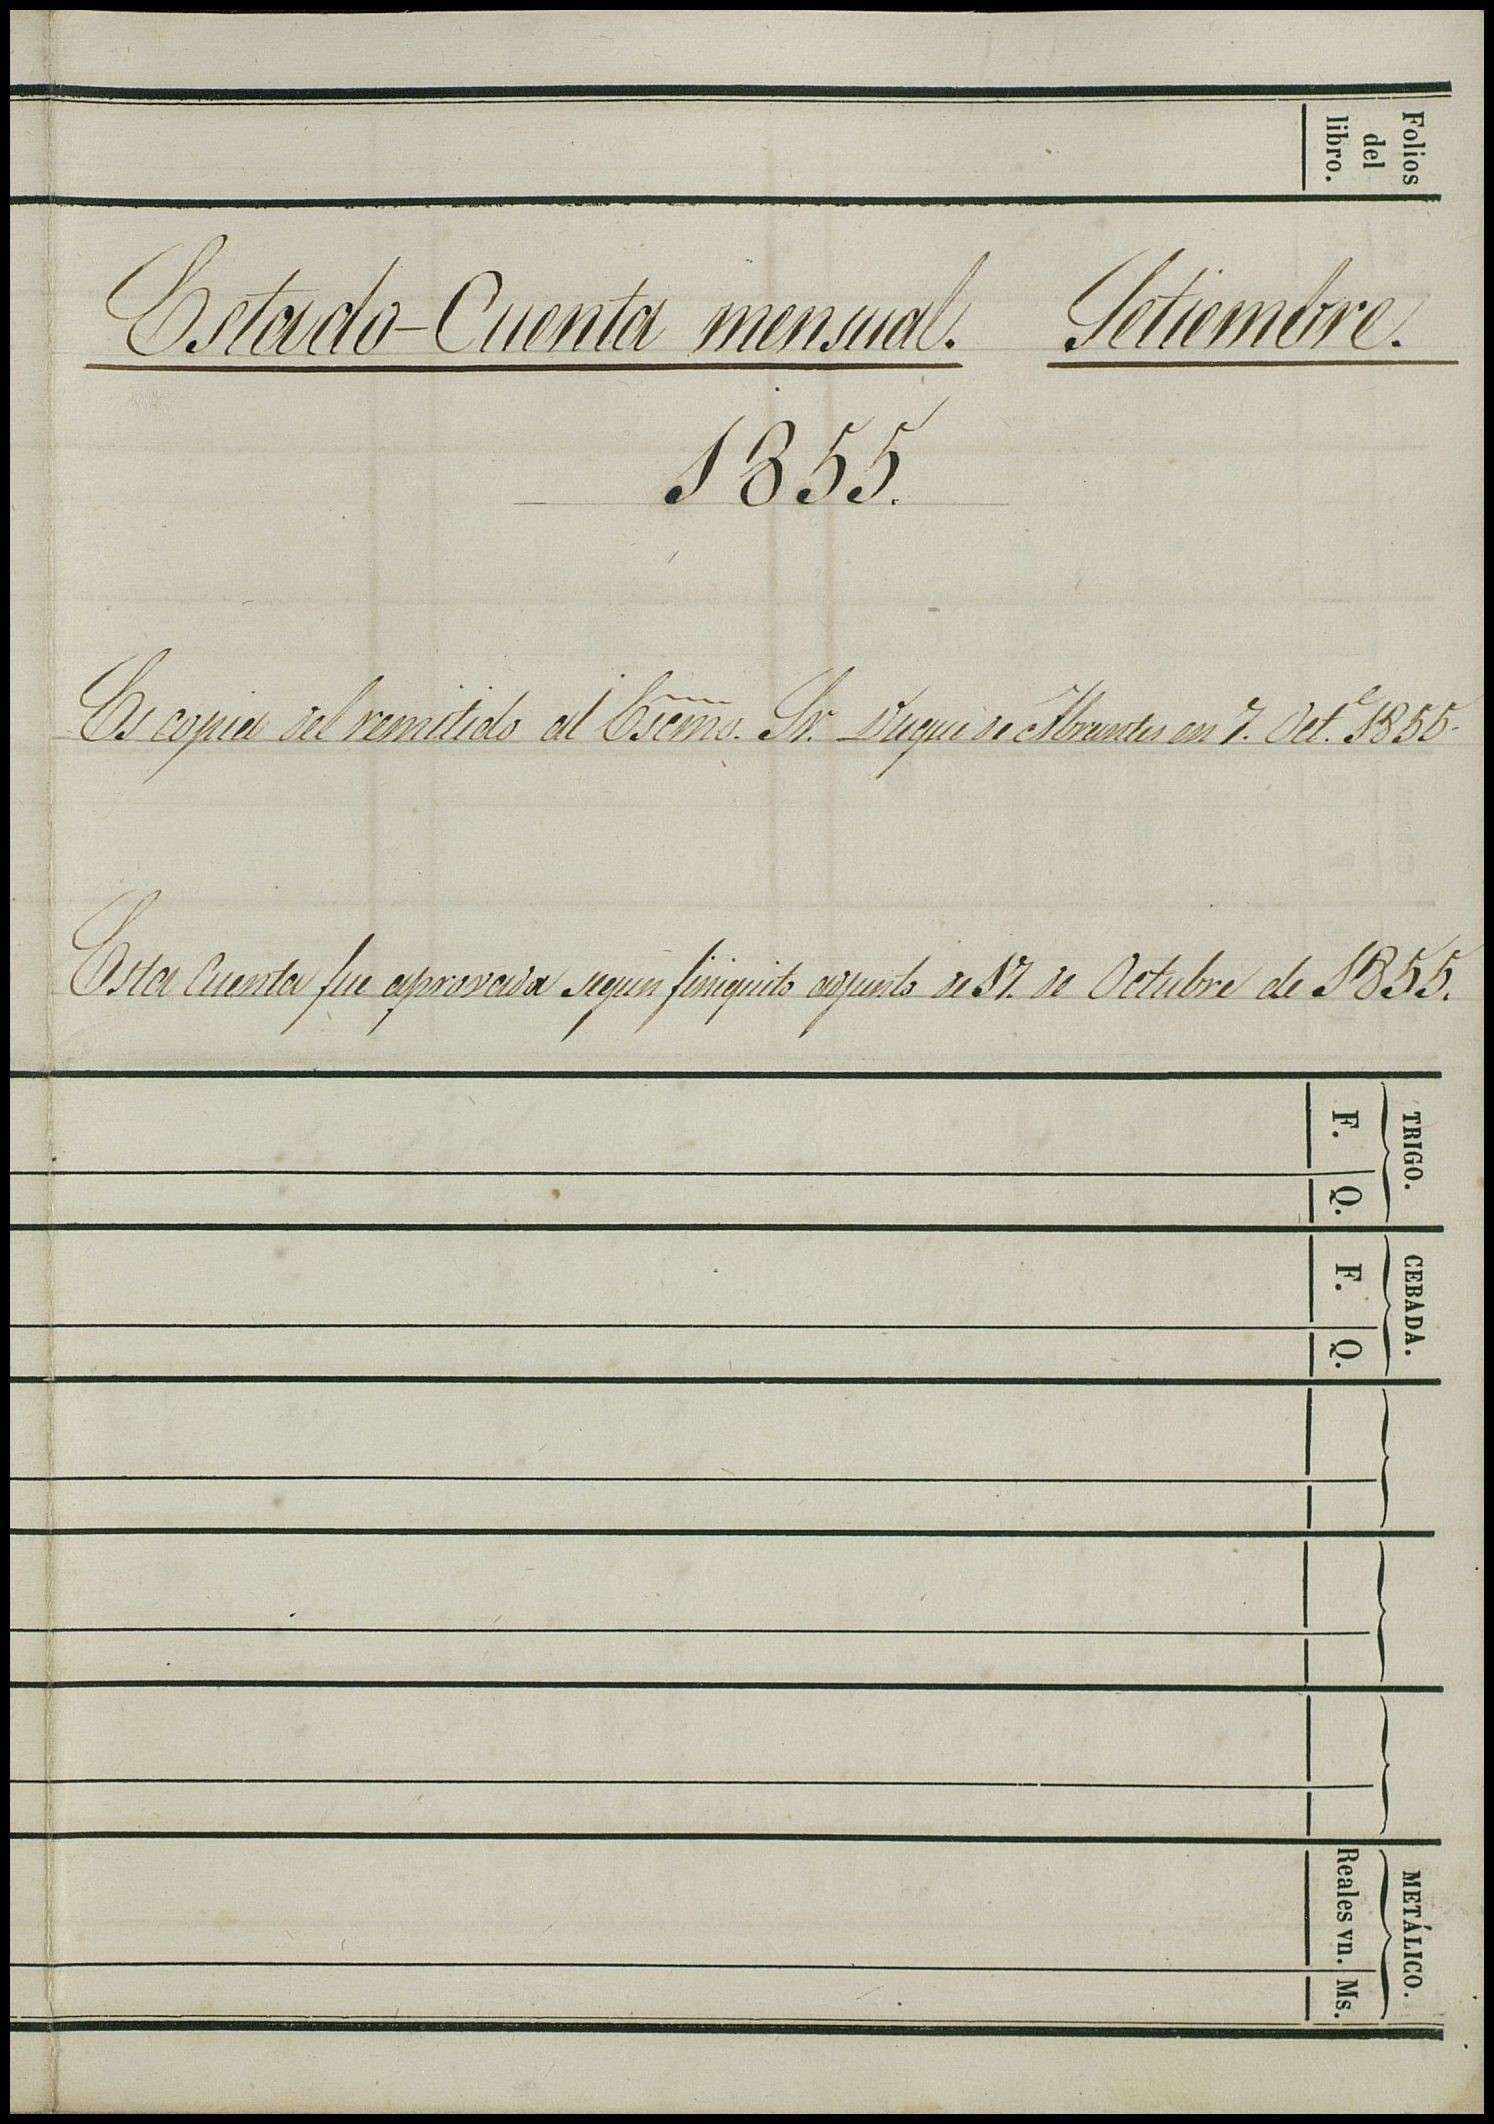 Folios
del
libro.
Estado-Cuenta mensual. Setiembre.
1855.
Es copia del remitido al Escmo. Sr. Duque de Abrantes en 7. Oct.e 1855.
Esta Cuenta fue aprovada segun finiquito adjunto de 17. de Octubre de 1855.
TRIGO.
F. Q.
CEBADA.
F. Q.
METÁLICO.
Reales vn. Ms.